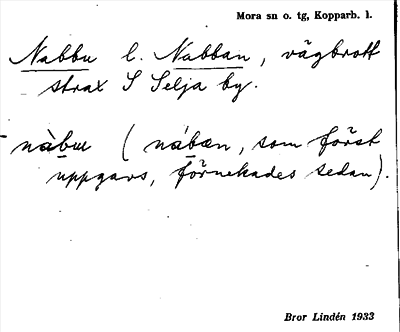 Mora sn o. tg, Kopparb. l.
Nabbu l. Nabban, vägbrott
strax S Selja by.
nàbu (nábæn, som först
uppgavs, förnekades sedan).
Bror Lindén 1933